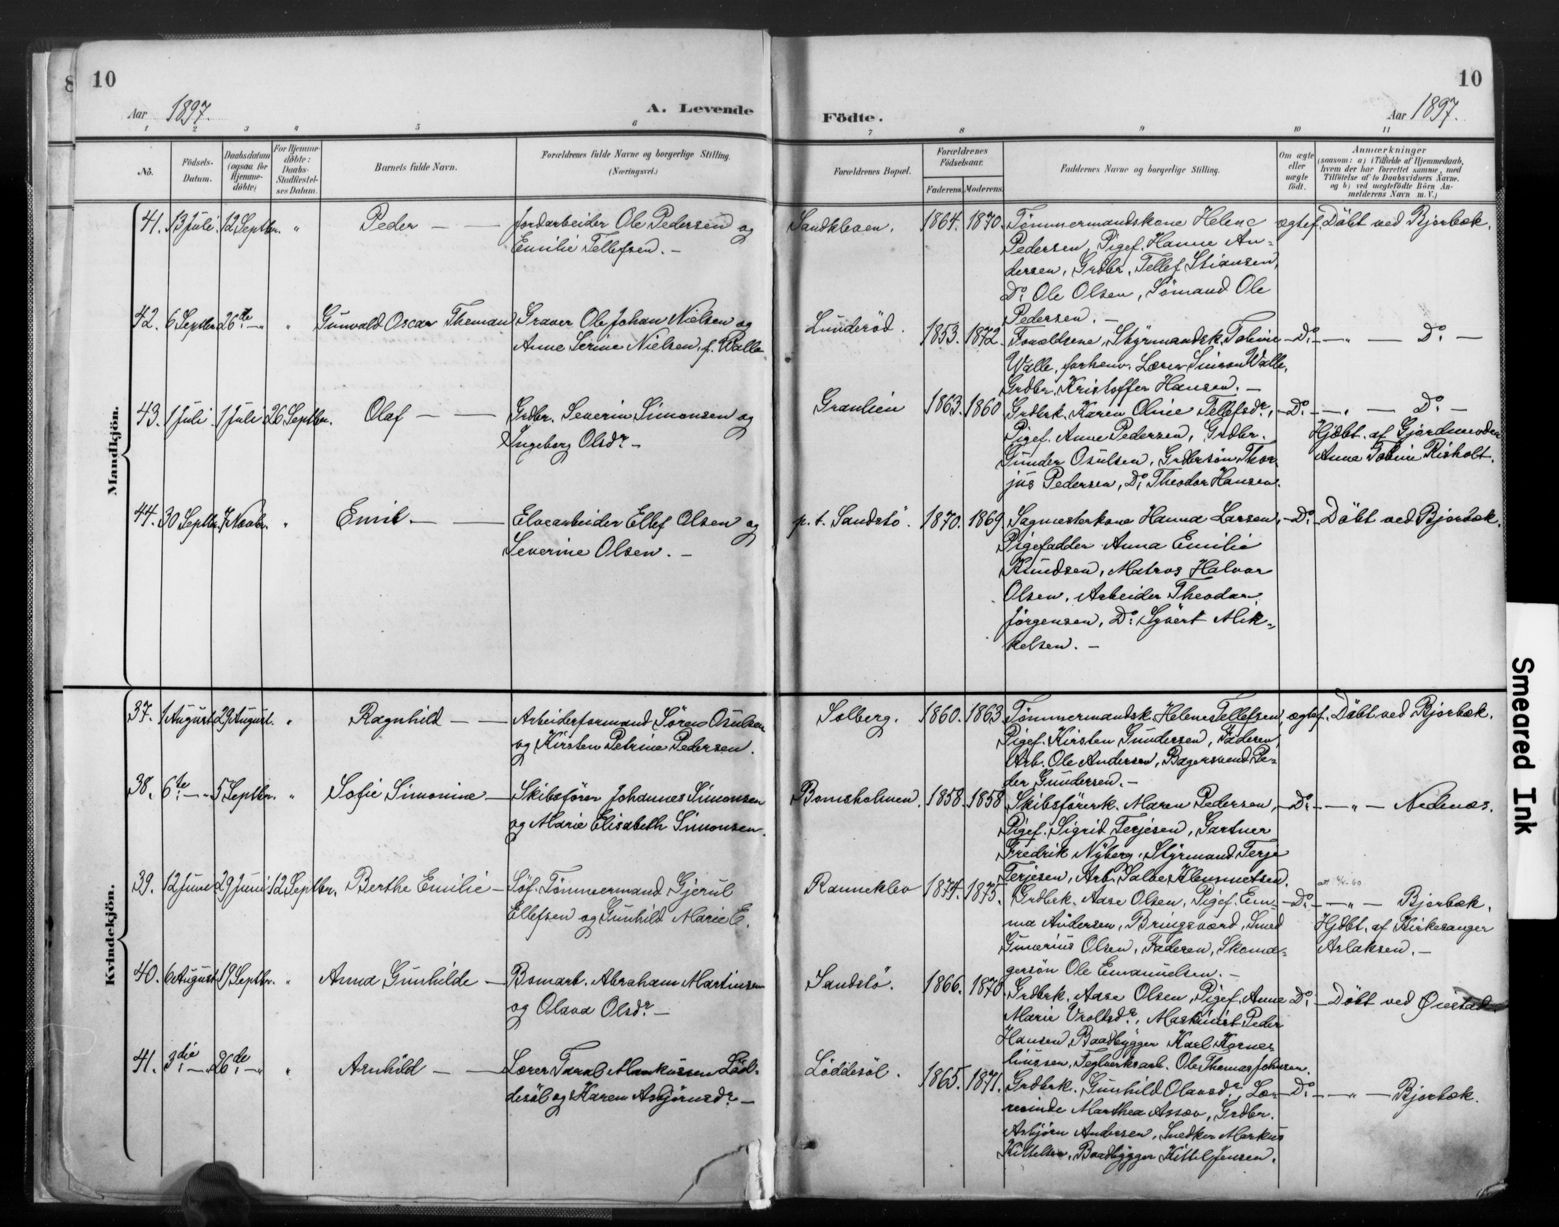 10
Aar 1897.
A. Levende
Födte.
Aar 1897.
10
1 2 3 4 5 6 7 8 9 10 11
No.
Födsels-Datum.
Daabsdatum (ogsaa for Hjemme-döbte)
For Hjemme-döbte: Daabs-Stadfæstel-ses Datum.
Barnets fulde Navn.
Forældrenes fulde Navne og borgerlige Stilling. (Næringsvei.)
Forældrenes Bopæl.
Forældrenes Födselsaar.
Faderens. Moderens.
Faddernes Navne og borgerlige Stilling.
Om ægte eller uægte födt.
Anmærkninger
(saasom: a) i Tilfælde af Hjemmedaab, hvem der har forrettet samme, med Tilföielse af to Daabsvidners Navne, og b) ved uegtefödte Börn An-melderens Navn m. V.)
Mandkjön.
41. 13 Juli 12 Septbr. " Peder — — Jordarbeider Ole Pedersen og
Emilie Tellefsen. —
Sandkleven. 1864. 1870. Tömmermandskone Helene
Pedersen, Pigef. Hanne An-
dersen, Grdbr. Tellef Stiansen,
Do. Ole Olsen, Sömand Ole
Pedersen. —
ægtef. Döbt ved Bjorbæk.
42. 6 Septbr 26de — " Gunvald Oscar Theman Graver Ole Johan Nielsen og
Anne Serine Nielsen, f. Walle
Lunderöd. 1853. 1872. Forældrene, Styrmandsk. Tobine
Walle, forhenv. Lærer Simon Walle,
Grdbr. Kristoffer Hansen. —
Do. — " — Do. —
43. 1 Juli 1 Juli 26 Septbr. Olaf — — Grdbr. Severin Simonsen og
Ingeborg Olsdr. —
Granlien 1863. 1860 Grdbrk. Karen Oline Tellefsdr.,
Pigef. Anne Pedersen, Grdbr.
Gunder Osulsen, Grdbrsön Thor-
jus Pedersen, Do. Theodor Hansen.
Do. — " — Do. —
Hjdbt. af Gjordmoderen
Anne Tobine Risholt.
44. 30 Septbr. 7 Novbr. " Emil. — — Elvearbeider Ellef Olsen og
Severine Olsen. —
p. t. Sandstö. 1870. 1869 Sagmesterkone Hanna Larsen,
Pigefadder Anna Emilie
Knudsen, Matros Halvor
Olsen, Arbeider Theodor
Jörgensen, Do. Syvert Mik-
kelsen. —
Do. Döbt ved Bjorbæk.
Kvindekjön.
37. 1 August 29 August. " Ragnhild — — Arbeiderformand Sören Osulsen
og Kirsten Petrine Pedersen.
Solberg. 1860. 1863 Tömmermandsk. Helene Tellefsen,
Pigef. Kirsten Gundersen, Faderen,
Arb. Ole Andersen, Bagersvend Pe-
der Gundersen. —
ægtef. Döbt ved Bjorbæk.
38. 6te — " 5 Septbr. " Sofie Simonine — Skibsförer Johannes Simonsen
og Marie Elisabeth Simonsen.
Bomsholmen. 1858. 1858 Skibsförerk. Maren Pedersen,
Pigef. Sigrid Terjesen, Gartner
Fredrik Nyberg, Styrmand Terje
Terjesen, Arb. Salve Klemmetsen.
Do. — " — Nedenæs.
39. 12 Juni 29 Juni 12 Septbr. Berthe Emilie — Söf. Tömmermand Gjerul
Ellefsen og Gunhild Marie E.
Ranneklev 1874. 1875. Grdbrk. Aase Olsen, Pigef. Em-
ma Andersen, Bringsværd, Smed
Gunerius Olsen, Faderen, Skoma-
gersön Ole Emanuelsen. —
Do. — " — Bjorbæk.
Hjdbt. af Kirkesanger
Aslaksen. —
40. 6 August 19 Septbr. " Anna Gunhilde — Bomarb. Abraham Martinsen
og Olava Olsdr. —
Sandstö. 1866. 1870 Grdbrk. Aase Olsen, Pigef. Anne
Marie Vrolsdr., Maskinist Peder
Hansen, Baadbygger Karl Kornel-
liussen, Teglverksarb. Ole Thomas Johnsen.
Do. — Döbt ved Öiestad.
41. 3die — " 26de — " " Arnhild — — Lærer Taral Markussen Löd-
desöl og Karen Asbjörnsdr. —
Löddesöl. 1865. 1871. Grdbrk. Gunhild Olavsdr., Læ-
rerinde Marthea Assev, Grdbr.
Asbjörn Andersen, Snedker Markus
Kittelsen, Baadbygger Kittil Jensen.
Do. — " — Bjorbæk.
Smeared Ink